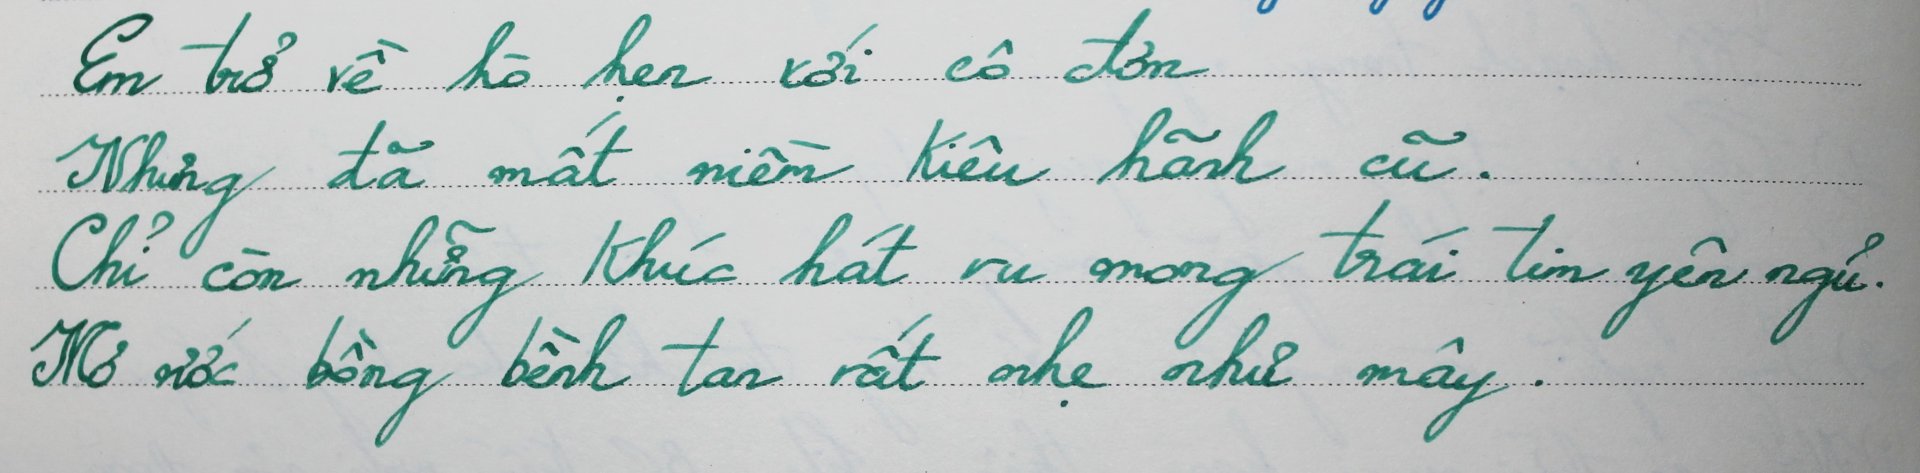 Em trở về hò hẹn với cô đơn
Nhưng đã mất niềm kiêu hãnh cũ.
Chỉ còn những khúc hát ru mong trái tim yên ngủ.
Mơ ước bồng bềnh tan rất nhẹ như mây.